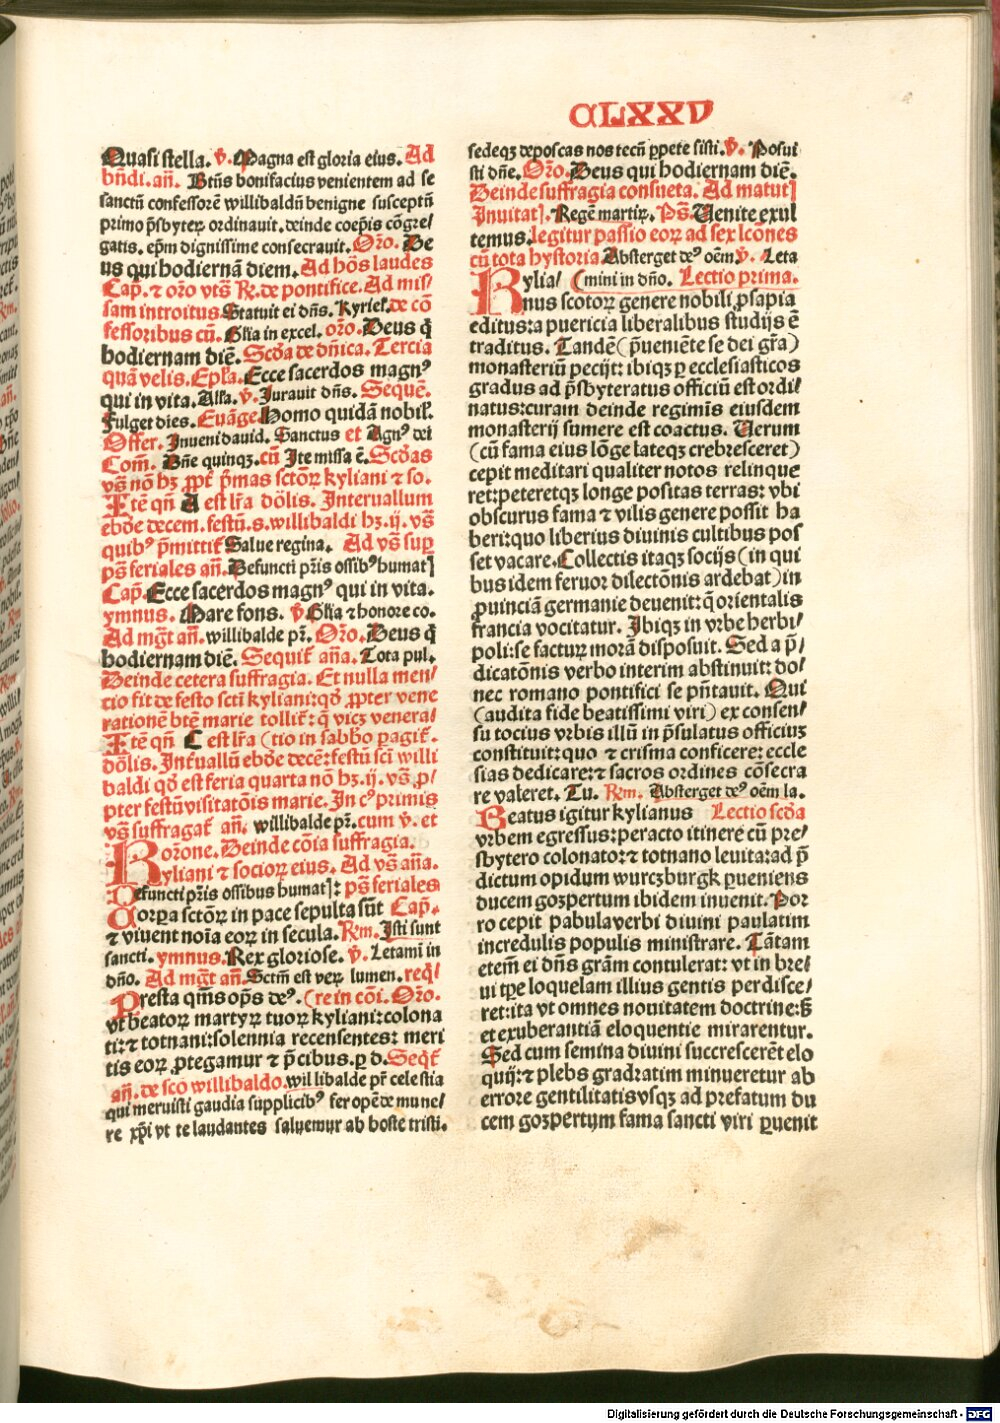 CLXXV
Quasi stella. v̄. Magna est gloria eius. Ad
bn̄di. an̄. Btūs bonifacius venientem ad se
sanctū confessorē willibaldū benigne susceptū
primo p̄sbyteꝝ ordinauit. deinde coep̄is cōgre/
gatis. ep̄m dignissime consecrauit. Or̄o. De
us qui hodiernā diem. Ad hōs laudes
Cap̄. ⁊ or̄o vts̄ R̄. de pontifice. Ad mis/
sam introitus. Statuit ei dn̄s. Kyriel̄. de cō
fessoribus cū. Gl̄ia in excel. or̄o. Deus q̄
hodiernam diē. Scd̄a de dn̄ica. Tercia
quā velis. Ep̄la. Ecce sacerdos magnꝰ
qui in vita. All̄a. v̄. Jurauit dn̄s. Sequē.
Fulget dies. Euāge. Homo quidā nobil̄.
Offer. Inueni dauid. Sanctus et Agnꝰ dei
Com̄. Bn̄e quinqꝫ. cū Ite missa ē. Scd̄as
vs̄ nō hꝫ ꝓpt̄ p̄mas sctōꝝ kyliani ⁊ so.
Itē qn̄ A est lr̄a dōlis. Interuallum
ebde decem. festū. s. willibaldi hꝫ. ij. vs̄
quibꝰ p̄mittit̄ Salue regina. Ad vs̄ sup̄
ps̄ feriales an̄. Defuncti pr̄is ossibꝰ humat]
Cap̄. Ecce sacerdos magnꝰ qui in vita.
ymnus. Mare fons. v̄ Gl̄ia ⁊ honore co.
Ad mḡt an̄. willibalde pr̄. Or̄o. Deus q̄
hodiernam diē. Sequit̄ an̄a. Tota pul.
Deinde cetera suffragia. Et nulla men/
tio fit de festo sctī kyliani: qd̄ ꝓpter vene
rationē btē marie tollit̄: q̄ vicꝫ venera/
Itē qn̄ C est lr̄a (tio in sabbo pagit̄.
dōlis. Int̄uallū ebde decē: festū scī willi
baldi qd̄ est feria quarta nō hꝫ. ij. vs̄. ꝓ/
pter festū visitatōis marie. In cꝰ primis
vs̄ suffragat̄ an̄. willibalde pr̄. cum v̄. et
or̄one. Deinde cōia suffragia.
Kyliani ⁊ socioꝝ eius. Ad vs̄ an̄a.
Defuncti pr̄is ossibus humat]: ps̄ feriales
Corpa sctōꝝ in pace sepulta sūt Cap̄.
⁊ viuent noīa eoꝝ in secula. Rm̄. Isti sunt
sancti. ymnus. Rex gloriose. v̄. Letamī in
dn̄o. Ad mḡt an̄. Sctm̄ est veꝝ lumen. req̄/
Presta qm̄s op̄s deꝰ. (re in cōi. Or̄o.
vt beatoꝝ martyꝝ tuoꝝ kyliani: colona
ti: ⁊ totnani: solennia recensentes: meri
tis eoꝝ ꝓtegamur ⁊ p̄cibus. ꝑ d. Seqt̄
an̄. de scō willibaldo. willibalde pr̄ celestia
qui meruisti gaudia supplicibꝰ fer opē de mune/
re xp̄i vt te laudantes saluemur ab hoste tristi.
sedeqꝫ deposcas nos tecū ꝑpete sisti. v̄. Posui
sti dn̄e. Or̄o. Deus qui hodiernam diē.
Deinde suffragia consueta. Ad matut]
Inuitat]. Regē martiꝝ. Ps̄. Uenite exul
temus. legitur passio eoꝝ ad sex lcōnes
cū tota hystoria. Absterget deꝰ oēm. v̄. Leta
Kylia/ (mini in dn̄o. Lectio prima.
nus scotoꝝ genere nobili ꝓsapia
editus: a puericia liberalibus studijs ē
traditus. Tandē (p̄ueniēte se dei gr̄a)
monasteriū pecijt: ibiqꝫ ꝑ ecclesiasticos
gradus ad p̄sbyteratus officiū est ordi/
natus: curam deinde regimis eiusdem
monasterij sumere est coactus. Uerum
(cū fama eius lōge lateqꝫ crebresceret)
cepit meditari qualiter notos relinque
ret: peteretqꝫ longe positas terras: vbi
obscurus fama ⁊ vilis genere possit ha
beri: quo liberius diuinis cultibus pos
set vacare. Collectis itaqꝫ socijs (in qui
bus idem feruor dilectōnis ardebat) in
ꝓuinciā germanie deuenit: q̄ orientalis
francia vocitatur. Ibiqꝫ in vrbe herbi/
poli: se facturꝝ morā disposuit. Sed a p̄/
dicatōnis verbo interim abstinuit: do/
nec romano pontifici se pn̄tauit. Qui
(audita fide beatissimi viri) ex consen/
su tocius vrbis illū in p̄sulatus officiuꝫ
constituit: quo ⁊ crisma conficere: eccle
sias dedicare: ⁊ sacros ordines cōsecra
re valeret. Tu. Rm̄. Absterget deꝰ oēm la.
Beatus igitur kylianus Lectio scd̄a
vrbem egressus: peracto itinere cū pre/
sbytero colonato: ⁊ totnano leuita: ad p̄
dictum opidum wurczburgk ꝑueniens
ducem gozpertum ibidem inuenit. Por
ro cepit pabula verbi diuini paulatim
incredulis populis ministrare. Tātam
etem̄ ei dn̄s grām contulerat: vt in bre/
ui tp̄e loquelam illius gentis perdisce/
ret: ita vt omnes nouitatem doctrine: s̄
et exuberantiā eloquentie mirarentur.
Sed cum semina diuini succrescerēt elo
quij: ⁊ plebs gradatim minueretur ab
errore gentilitatis vsqꝫ ad prefatum du
cem gozpertum fama sancti viri ꝑuenit
Digitalisierung gefördert durch die Deutsche Forschungsgemeinschaft - DFG